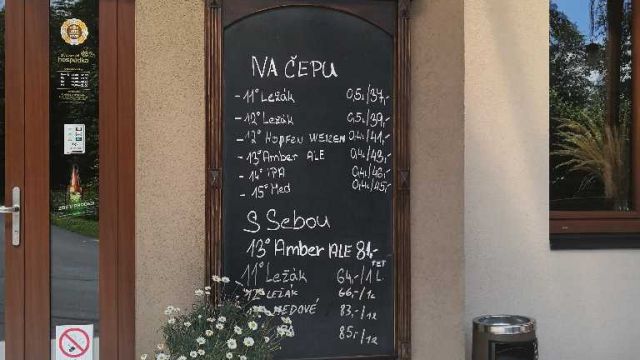 hospůdka
NA ČEPU
- 11° Ležák 0,5L/37,-
- 12° Ležák 0,5L/39,-
- 12° Hopfen WEIZEN 0,4L/41,-
- 13° Amber ALE 0,4L/43,-
- 14° iPA 0,4L/46,-
- 15° Med 0,4L/45,-
S Sebou
13° Amber ALE 81,-
PET
11° Ležák 64,-/1L
12° LEŽÁK 66,-/1L
MEDOVÉ 83,-/1L
85,-/1L